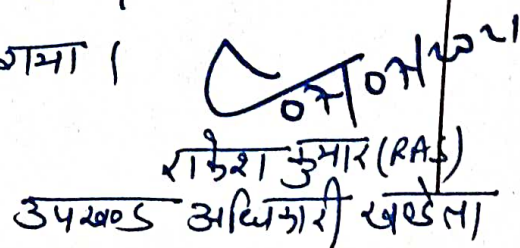 गया ।
राकेश कुमार (RAS)
उपखण्ड अधिकारी खण्डेला